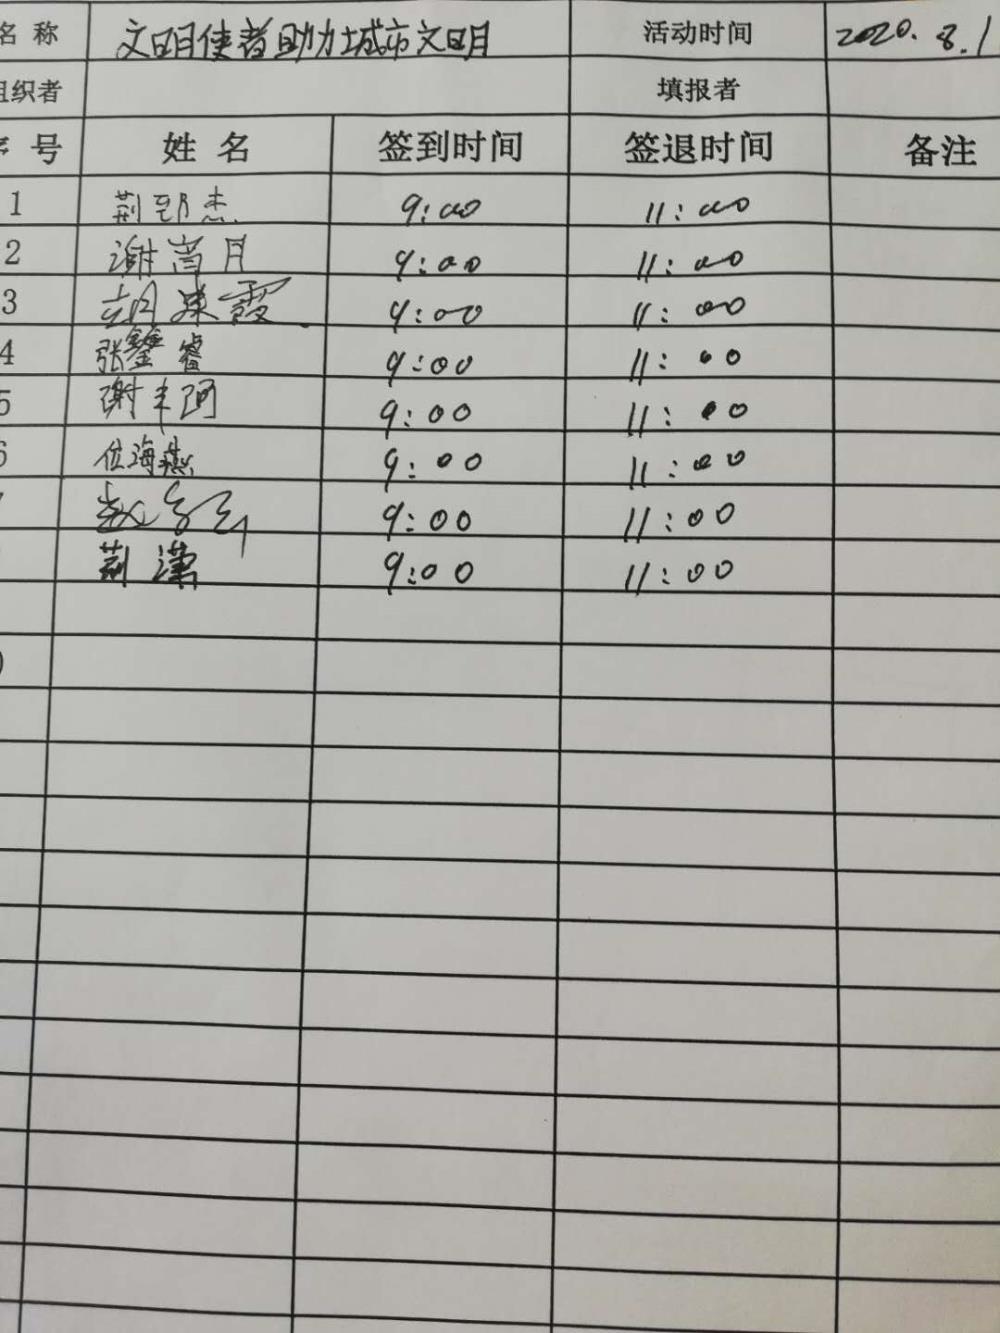 名 称 文明使者助力城市文明 活动时间 2020.8.1
组织者 填报者
序 号 姓 名 签到时间 签退时间 备注
1 荆 杰 9:00 11:00
2 谢 月 9:00 11:00
3 胡 霞 9:00 11:00
4 张鑒睿 9:00 11:00
5 谢丰阿 9:00 11:00
6 位海燕 9:00 11:00
赵 9:00 11:00
荆 潇 9:00 11:00